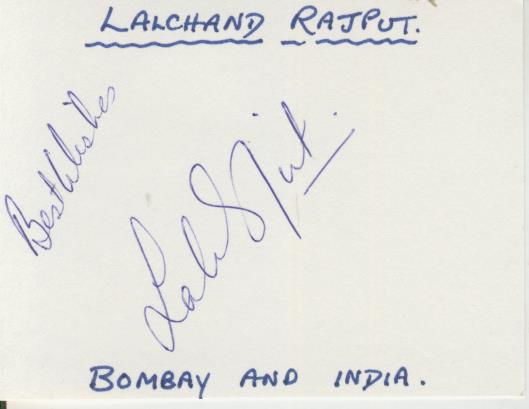 LALCHAND RAJPUT.
Best Wishes
BOMBAY AND INDIA.